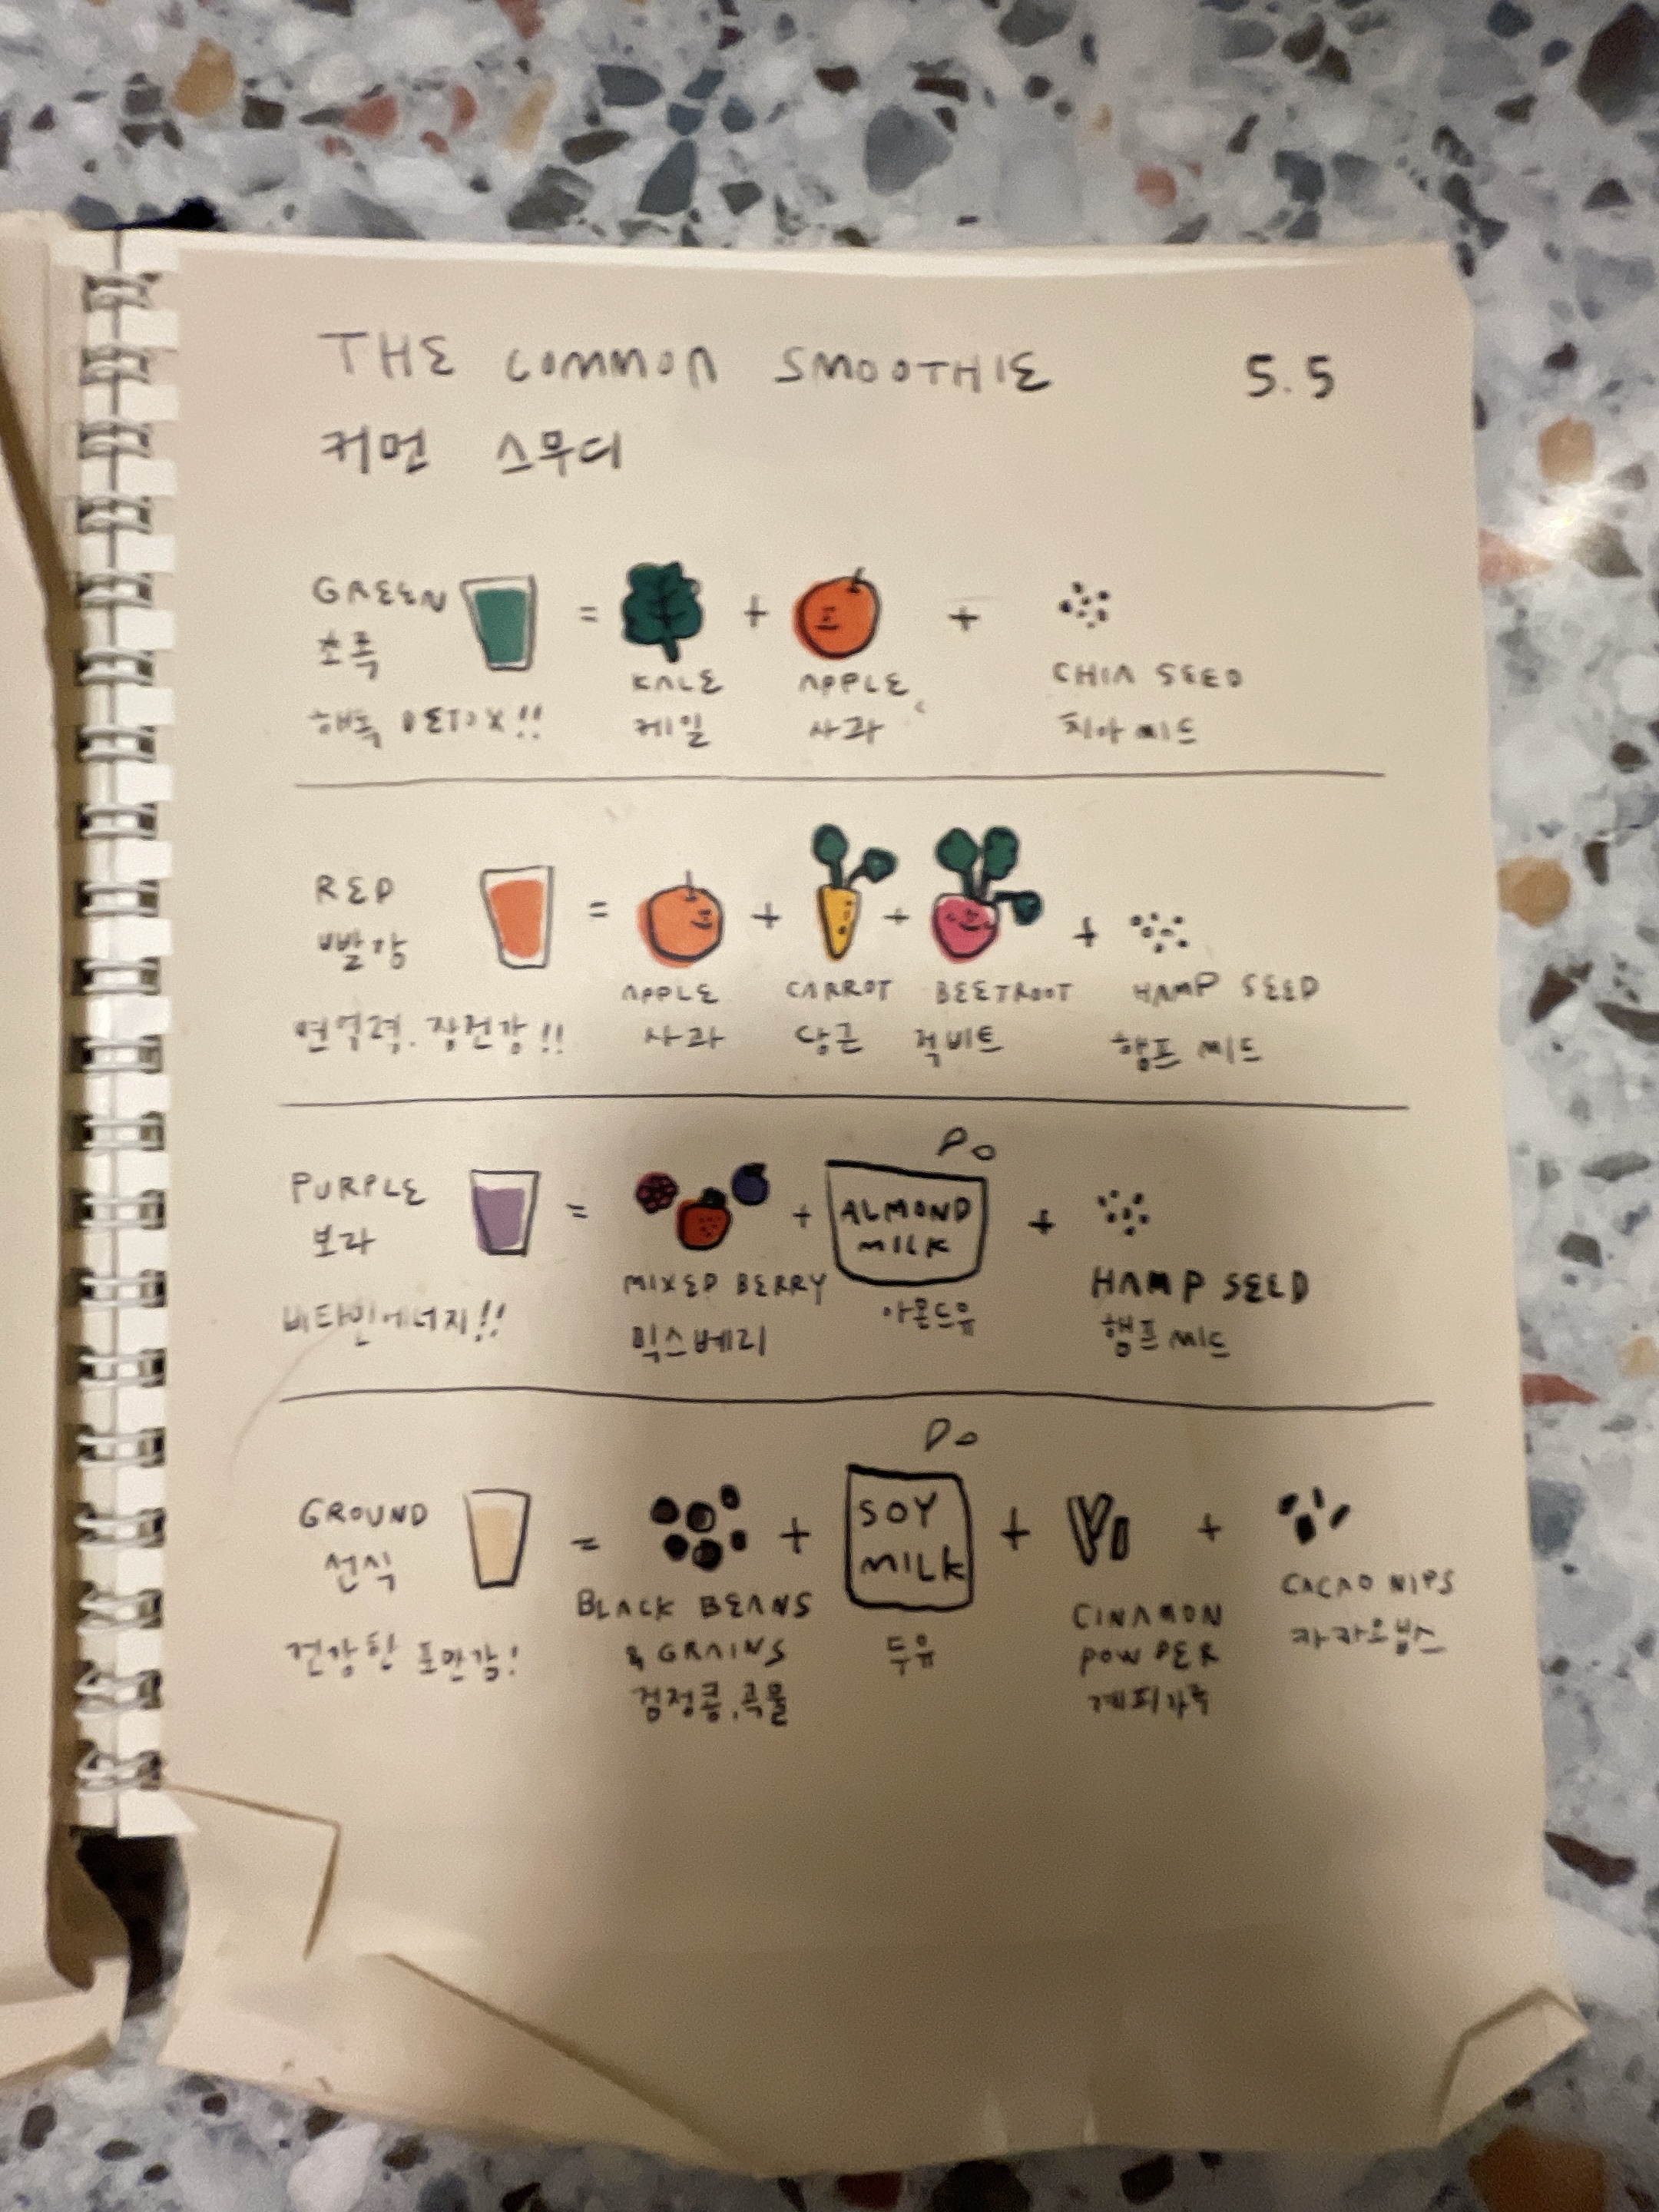 THE COMMON SMOOTHIE 5.5
커먼 스무디
GREEN
초록
해독 DETOX!!
KALE
케일
APPLE
사과
CHIA SEED
치아씨드
RED
빨강
면역력. 장건강!!
APPLE
사과
CARROT
당근
BEETROOT
적비트
HAMP SEED
햄프 씨드
PURPLE
보라
비타민에너지!!
MIXED BERRY
믹스베리
ALMOND
MILK
아몬드유
HAMP SEED
햄프 씨드
GROUND
선식
건강한 포만감!
BLACK BEANS
& GRAINS
검정콩, 곡물
SOY
MILK
두유
CINAMON
POWDER
계피가루
CACAO NIPS
카카오닙스